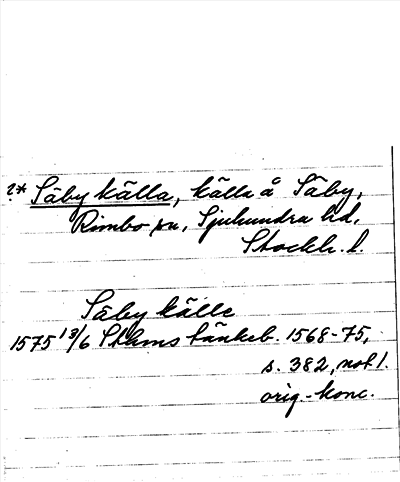 ?* Säby källa, källa å Säby,
Rimbo sn, Sjuhundra hd,
Stockh. l.
Säby källe
1575 13/6 Sthms tänkeb. 1568-75,
s. 382, not 1.
orig.-konc.